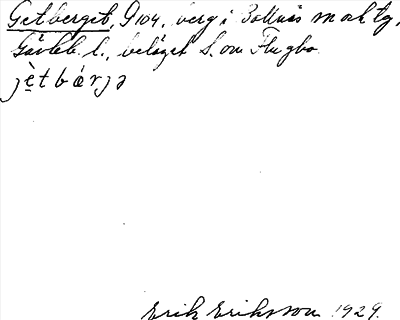 Getberget, 9104, berg i Bollnäs m och tg,
Gävleb. l., beläget S. om Flugbo.
jètbǽrjə
Erik Eriksson 1929.